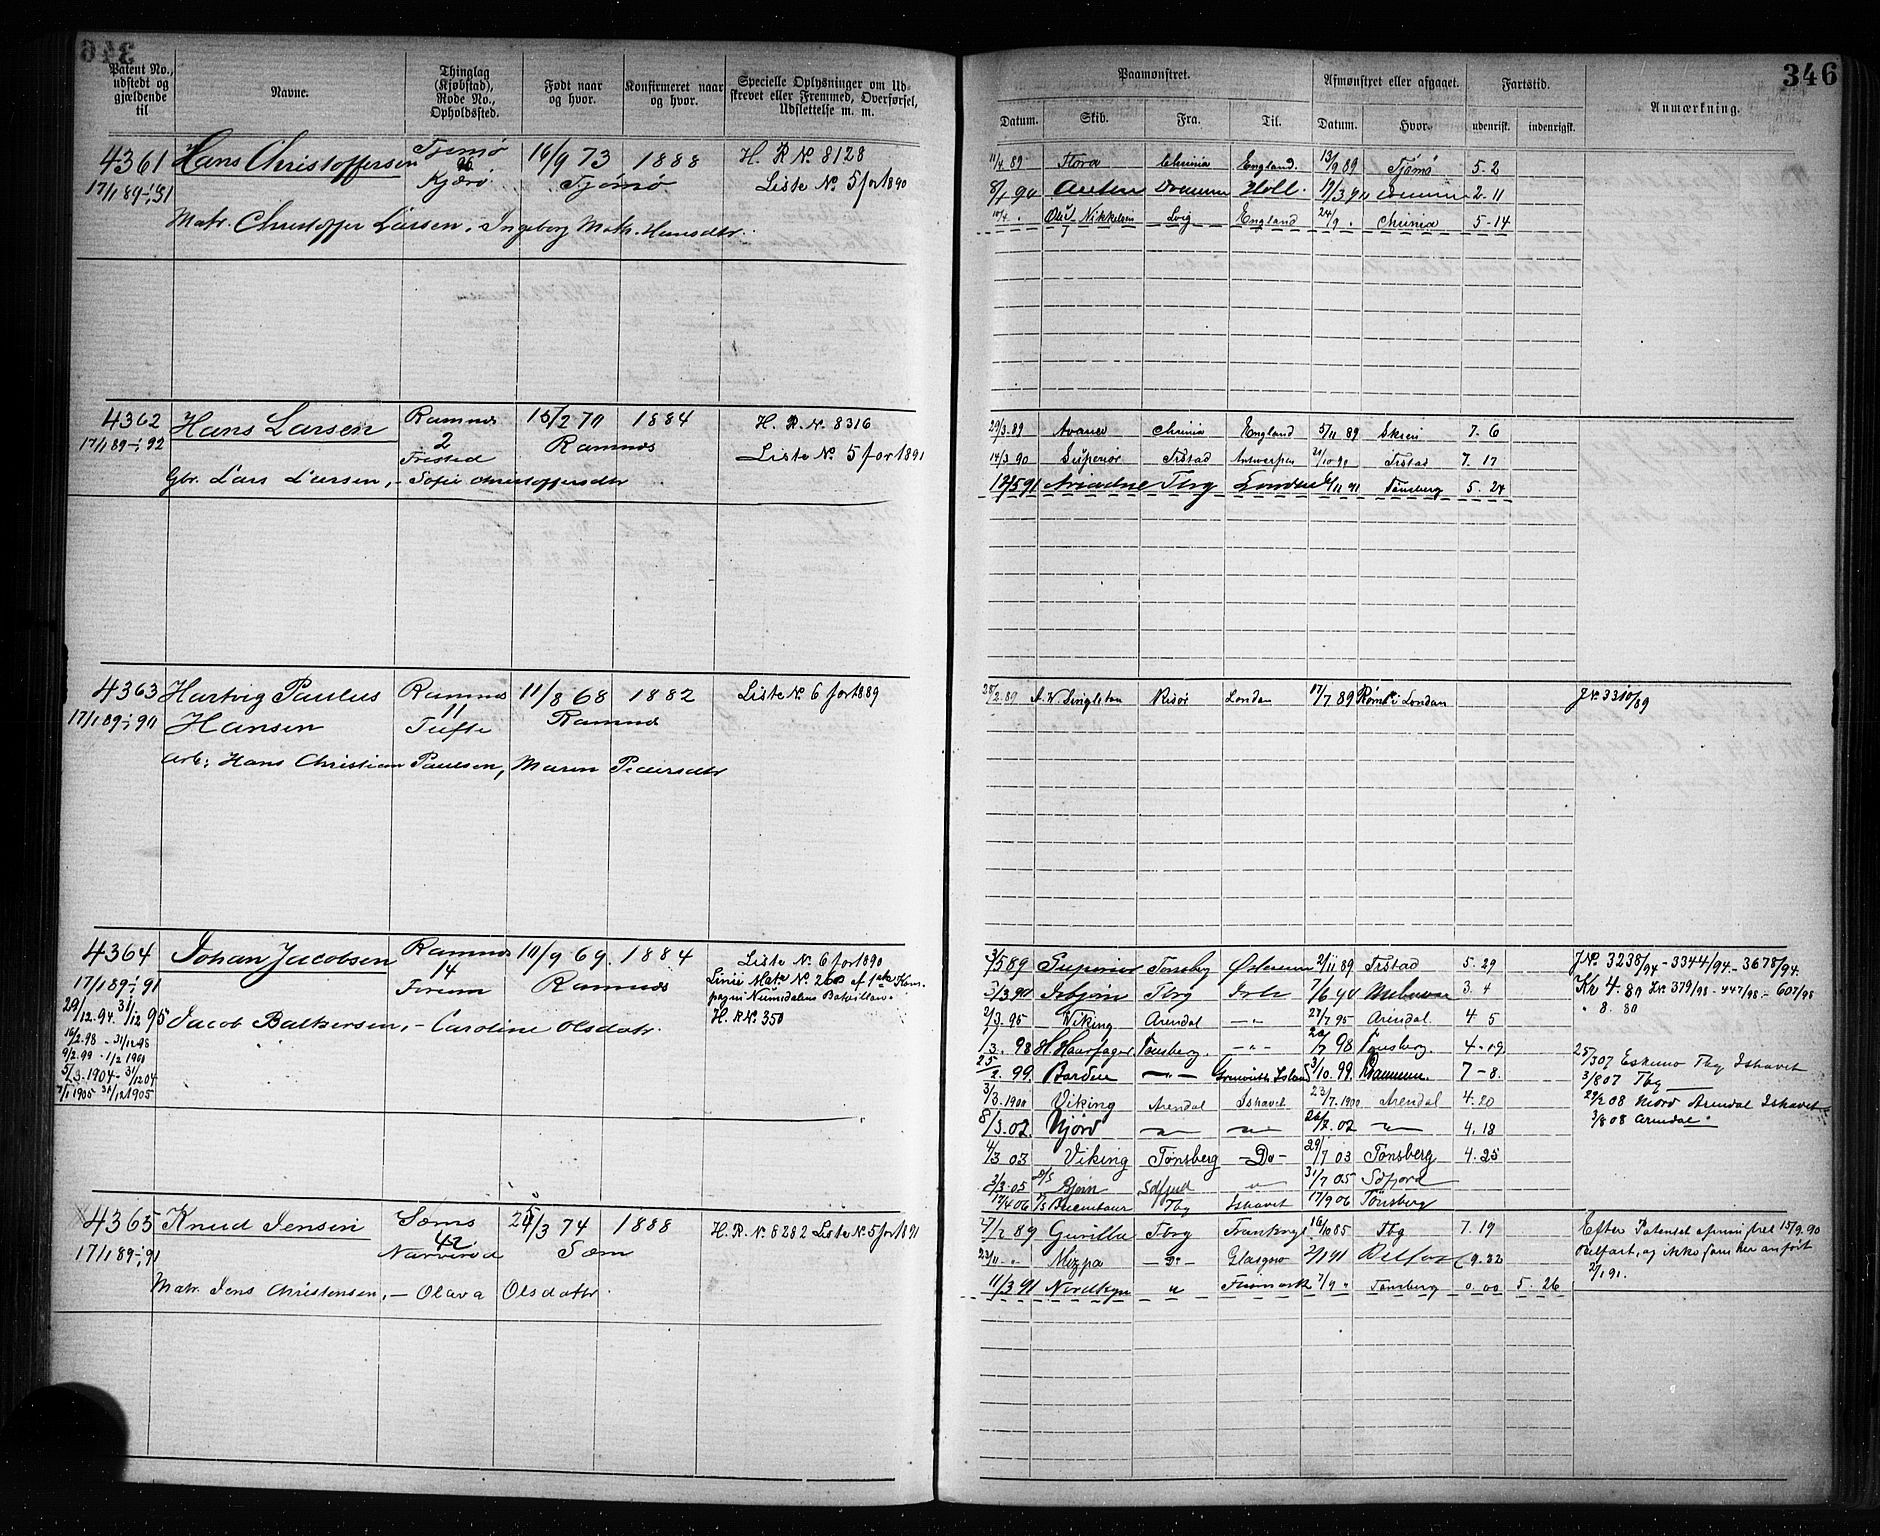 346
Patent No., udstedt og gjældende til
Navne.
Thinglag (Kjøbstad), Rode No., Opholdssted.
Født naar og hvor.
Konfirmeret naar og hvor.
Specielle Oplysninger om Udskrevet eller Fremmed, Overførsel, Udslettelse m. m.
Paamønstret.
Afmønstret eller afgaaet.
Fartstid.
Anmærkning.
Datum. Skib. Fra. Til. Datum. Hvor. udenrikst. indenrigst.
4361 Hans Christoffersen Tjømø 16/9 73 1888 H. R. No 8128
17/1 89 - 1/1 91 Kjærø Tjømø Liste No. 5 for 1890
Matr. Christoffer Larsen, Ingeborg Math. Hansdtr.
11/4 89 Flora Chrinia England 13/9 89 Tjømø 5. 2
Holl. 19/3 90 2-11
England 24/9 " Chrinia 5-14
4362 Hans Larsen Ramnes 15/2 70 1884 H. R. No. 8316
17/1 89 - 1/1 92 2 Fristed Ramnes Liste No. 5 for 1891
Gbr. Lars Larsen, - Sofie Christoffersdtr
29/3. 89 Avance Chrinia England 5/11 89 Skien 7. 6
14/3 90 Superior Frstad Antwerpen Frstad 7. 17
12/5 91 Ariadne Tbrg London Tønsberg 5. 24
4363 Hartvig Paulus Ramnes 11/8 68 1882 Liste No. 6 for 1889
17/1 89 - 1/1 90 Hansen 11 Tufte Ramnes
Arb: Hans Christian Paulsen, Maren Pedersdtr
A. W. Singleton Risør London 17/7 89 Rømt i London J No. 3310/89
4364 Johan Jacobsen Ramnes 10/9 69. 1884 Liste No. 6 for 1890
17/1 89 - 1/1 91 14 Ramnes Linie Matr. No. 260 af 1ste Kom-
29/12. 94. 31/12 95 pagni Numedalens Bataillon.
Jacob Balkersen, - Caroline Olsdatr. H. R. No. 350
16/2. 98 - 31/12 98
9/2. 99 - 1/2 1901
5/3. 1904 - 31/12 04
7/1 1905 31/12 1905
3/5 89 Superior Tønsbg 2/11 89 Frstad 5. 29 J No. 3238/94 - 3344/94 - 3678/94.
5/3 90 Isbjørn Tbrg 7/6 90 3. 4 Kr 4. 80 J No. 379/98 - 447/98 - 607/98
2/3. 95 Viking Arendal - " - 27/7 95 Arendal. 4 5 " 8. 80
1/3. 98 H. Haarfager Tønsberg. - " - 98 Tønsberg. 4-19
25/2. 99. - " - 3/10. 99. Drammen. 7-8. 25/3 07 Eskimo Tbg Ishavet
3/3. 1900 Viking Arendal Ishavet 23/7. 1900 Arendal 4. 20 3/8 07 Tbg
8/3. 02. Njord - " - - " - 02 - " - 4. 18 29/2 08 Njord Arendal Ishavet
4/3 03 Viking Tønsberg - Do - 29/7 03 Tønsberg 4. 25 3/8 08 Arendal
2/3. 05 Bjørn 31/7 05 Sdfjord
17/4 06 Tbg Ishavet 17/9 06 Tønsberg
4365 Knud Jensen Sæms 25/3 74 1888 H. R. No. 8282 Liste No. 5 for 1891
17/1 89 - 1/1 91 42 Narverød Sæm
Matr. Jens Christensen, - Olava Olsdatr.
2/2 89 Gunilla Tbrg Frankrig Tbg 7. 19 Efter Patentet afmønstret 15/9. 90
Mizpa - Do - Glasgow Belfast 9. 22 Belfast, og ikke som her anført
11/3 91 Nordkyn " Finmark 7/9 " Tønsberg 0. 00 5. 26 2/1 91.